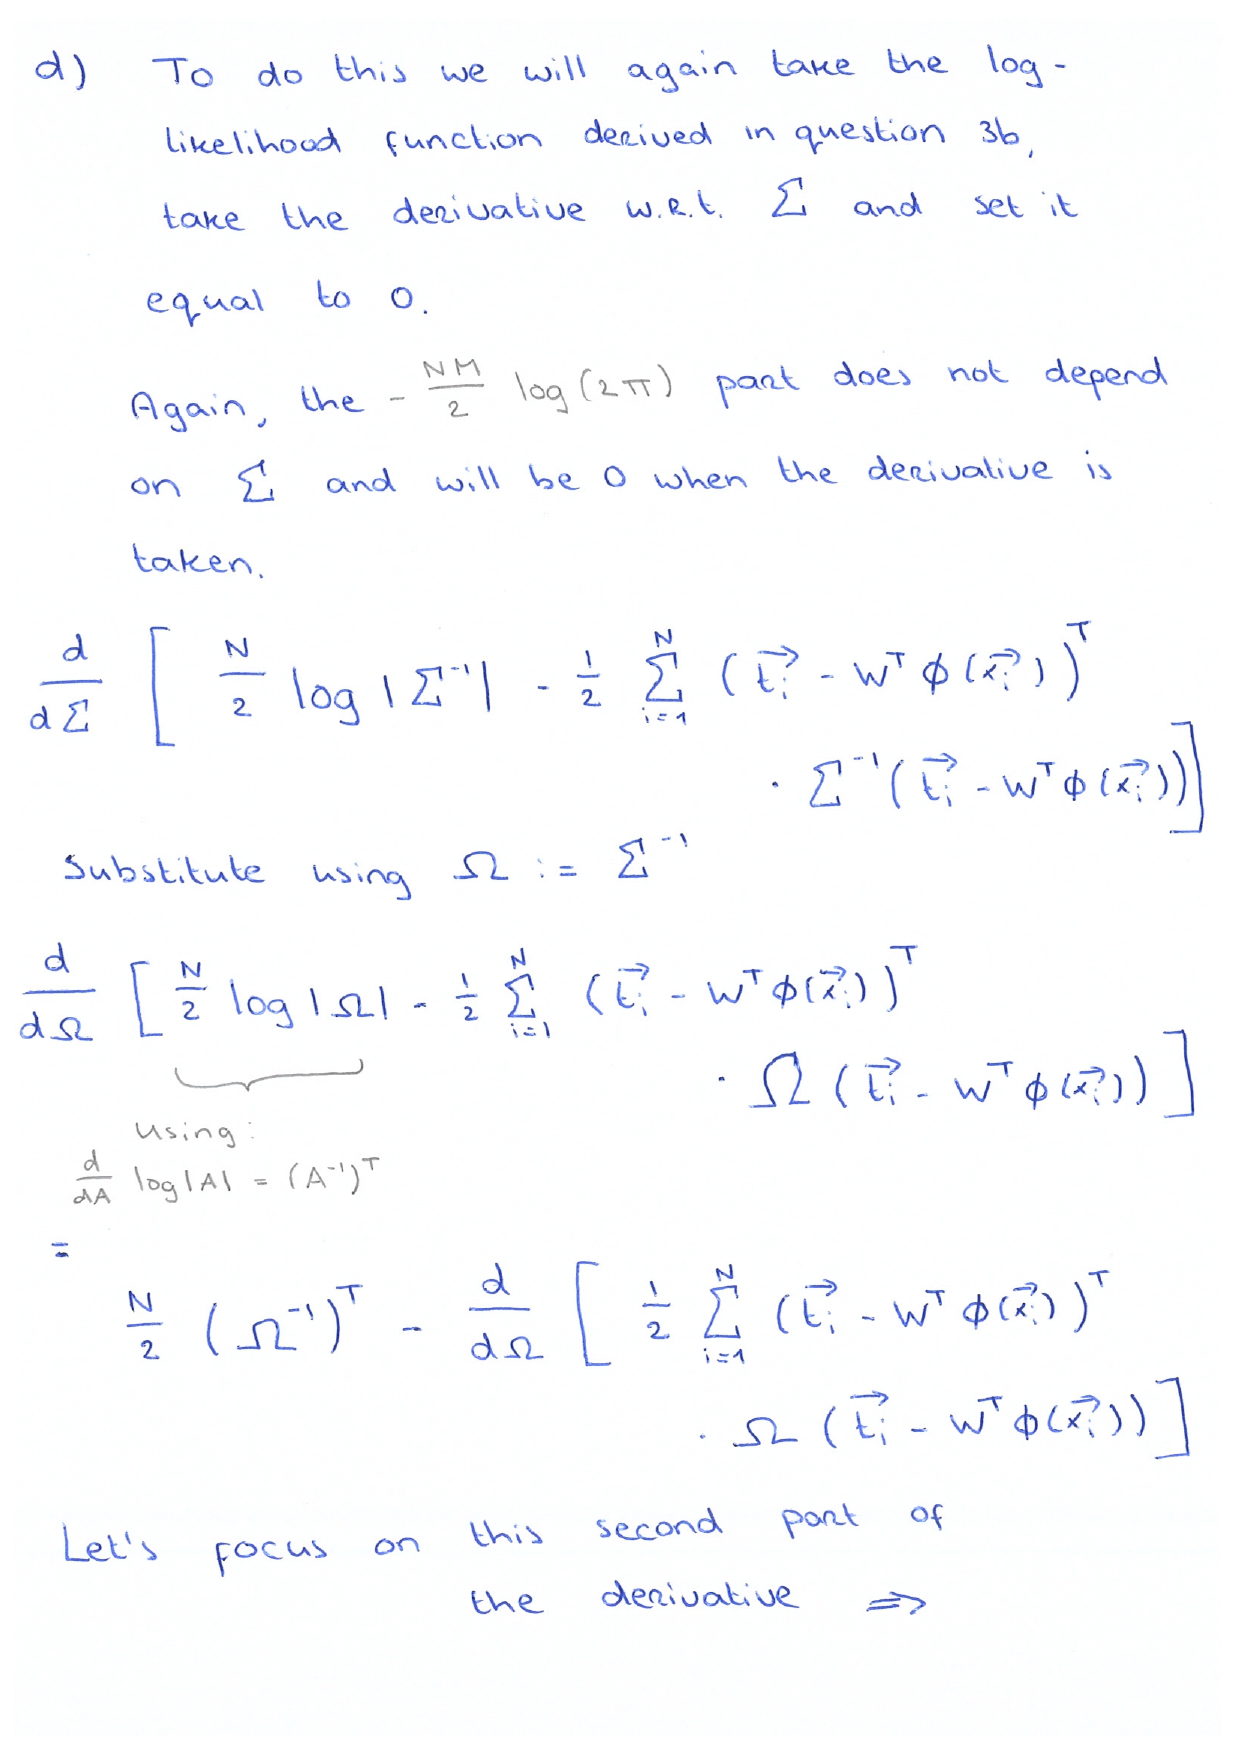 d) To do this we will again take the log-
likelihood function derived in question 3b,
take the derivative w.r.t. Σ and set it
equal to 0.
Again, the - NM/2 log(2π) part does not depend
on Σ and will be 0 when the derivative is
taken.
d/dΣ [ N/2 log|Σ⁻¹| - 1/2 Σ_{i=1}^{N} (t⃗ᵢ - Wᵀϕ(x⃗ᵢ))ᵀ
· Σ⁻¹(t⃗ᵢ - Wᵀϕ(x⃗ᵢ))]
Substitute using Ω := Σ⁻¹
d/dΩ [ N/2 log|Ω| - 1/2 Σ_{i=1}^{N} (t⃗ᵢ - Wᵀϕ(x⃗ᵢ))ᵀ
· Ω (t⃗ᵢ - Wᵀϕ(x⃗ᵢ)) ]
using:
d/dA log|A| = (A⁻¹)ᵀ
=
N/2 (Ω⁻¹)ᵀ - d/dΩ [ 1/2 Σ_{i=1}^{N} (t⃗ᵢ - Wᵀϕ(x⃗ᵢ))ᵀ
· Ω (t⃗ᵢ - Wᵀϕ(x⃗ᵢ)) ]
Let's focus on this second part of
the derivative ⇒